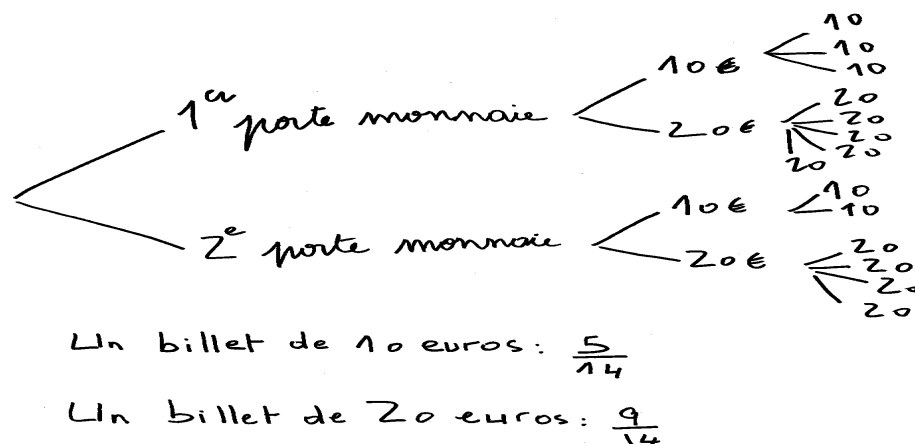 1er porte monnaie
10€
10
10
10
20€
20
20
20
20
20
2e porte monnaie
10€
10
10
20€
20
20
20
20
Un billet de 10 euros: 5/14
Un billet de 20 euros: 9/14